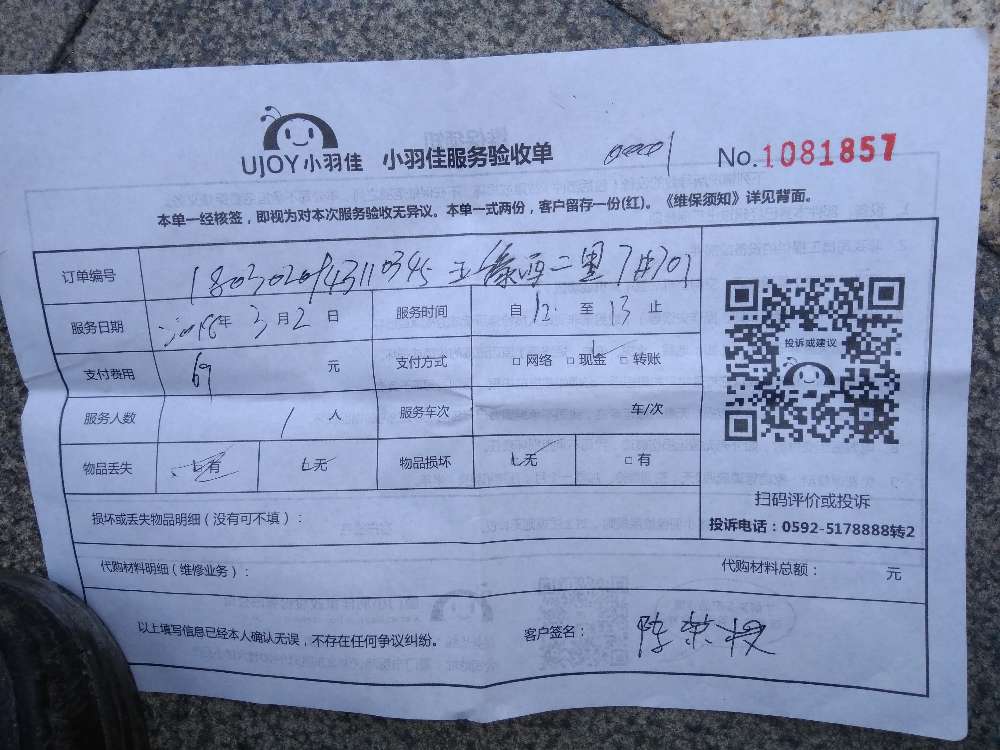 UJOY小羽佳 小羽佳服务验收单 No.1081857
本单一经核签，即视为对本次服务验收无异议。本单一式两份，客户留存一份(红)。《维保须知》详见背面。
订单编号 1803020943110345 二里7由701
服务日期 2018年3月2日 服务时间 自12至13止
支付费用 69元 支付方式 □网络 □现金 □转账
服务人数 1人 服务车次 车/次
物品丢失 有 无 物品损坏 无 □有
损坏或丢失物品明细（没有可不填）：
代购材料明细（维修业务）： 代购材料总额： 元
以上填写信息已经本人确认无误，不存在任何争议纠纷。 客户签名： 陈荣
投诉或建议
扫码评价或投诉
投诉电话：0592-5178888转2